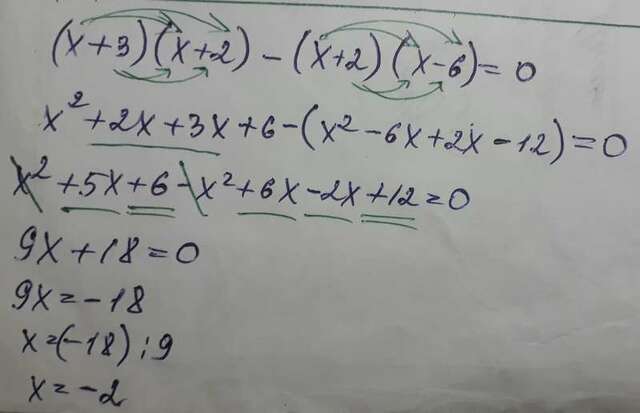 (x+3)(x+2)-(x+2)(x-6)=0
x²+2x+3x+6-(x²-6x+2x-12)=0
x²+5x+6-x²+6x-2x+12=0
9x+18=0
9x=-18
x=(-18):9
x=-2